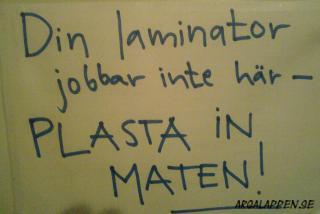 Din laminator
jobbar inte här –
PLASTA IN
MATEN!
ARGALAPPEN.SE